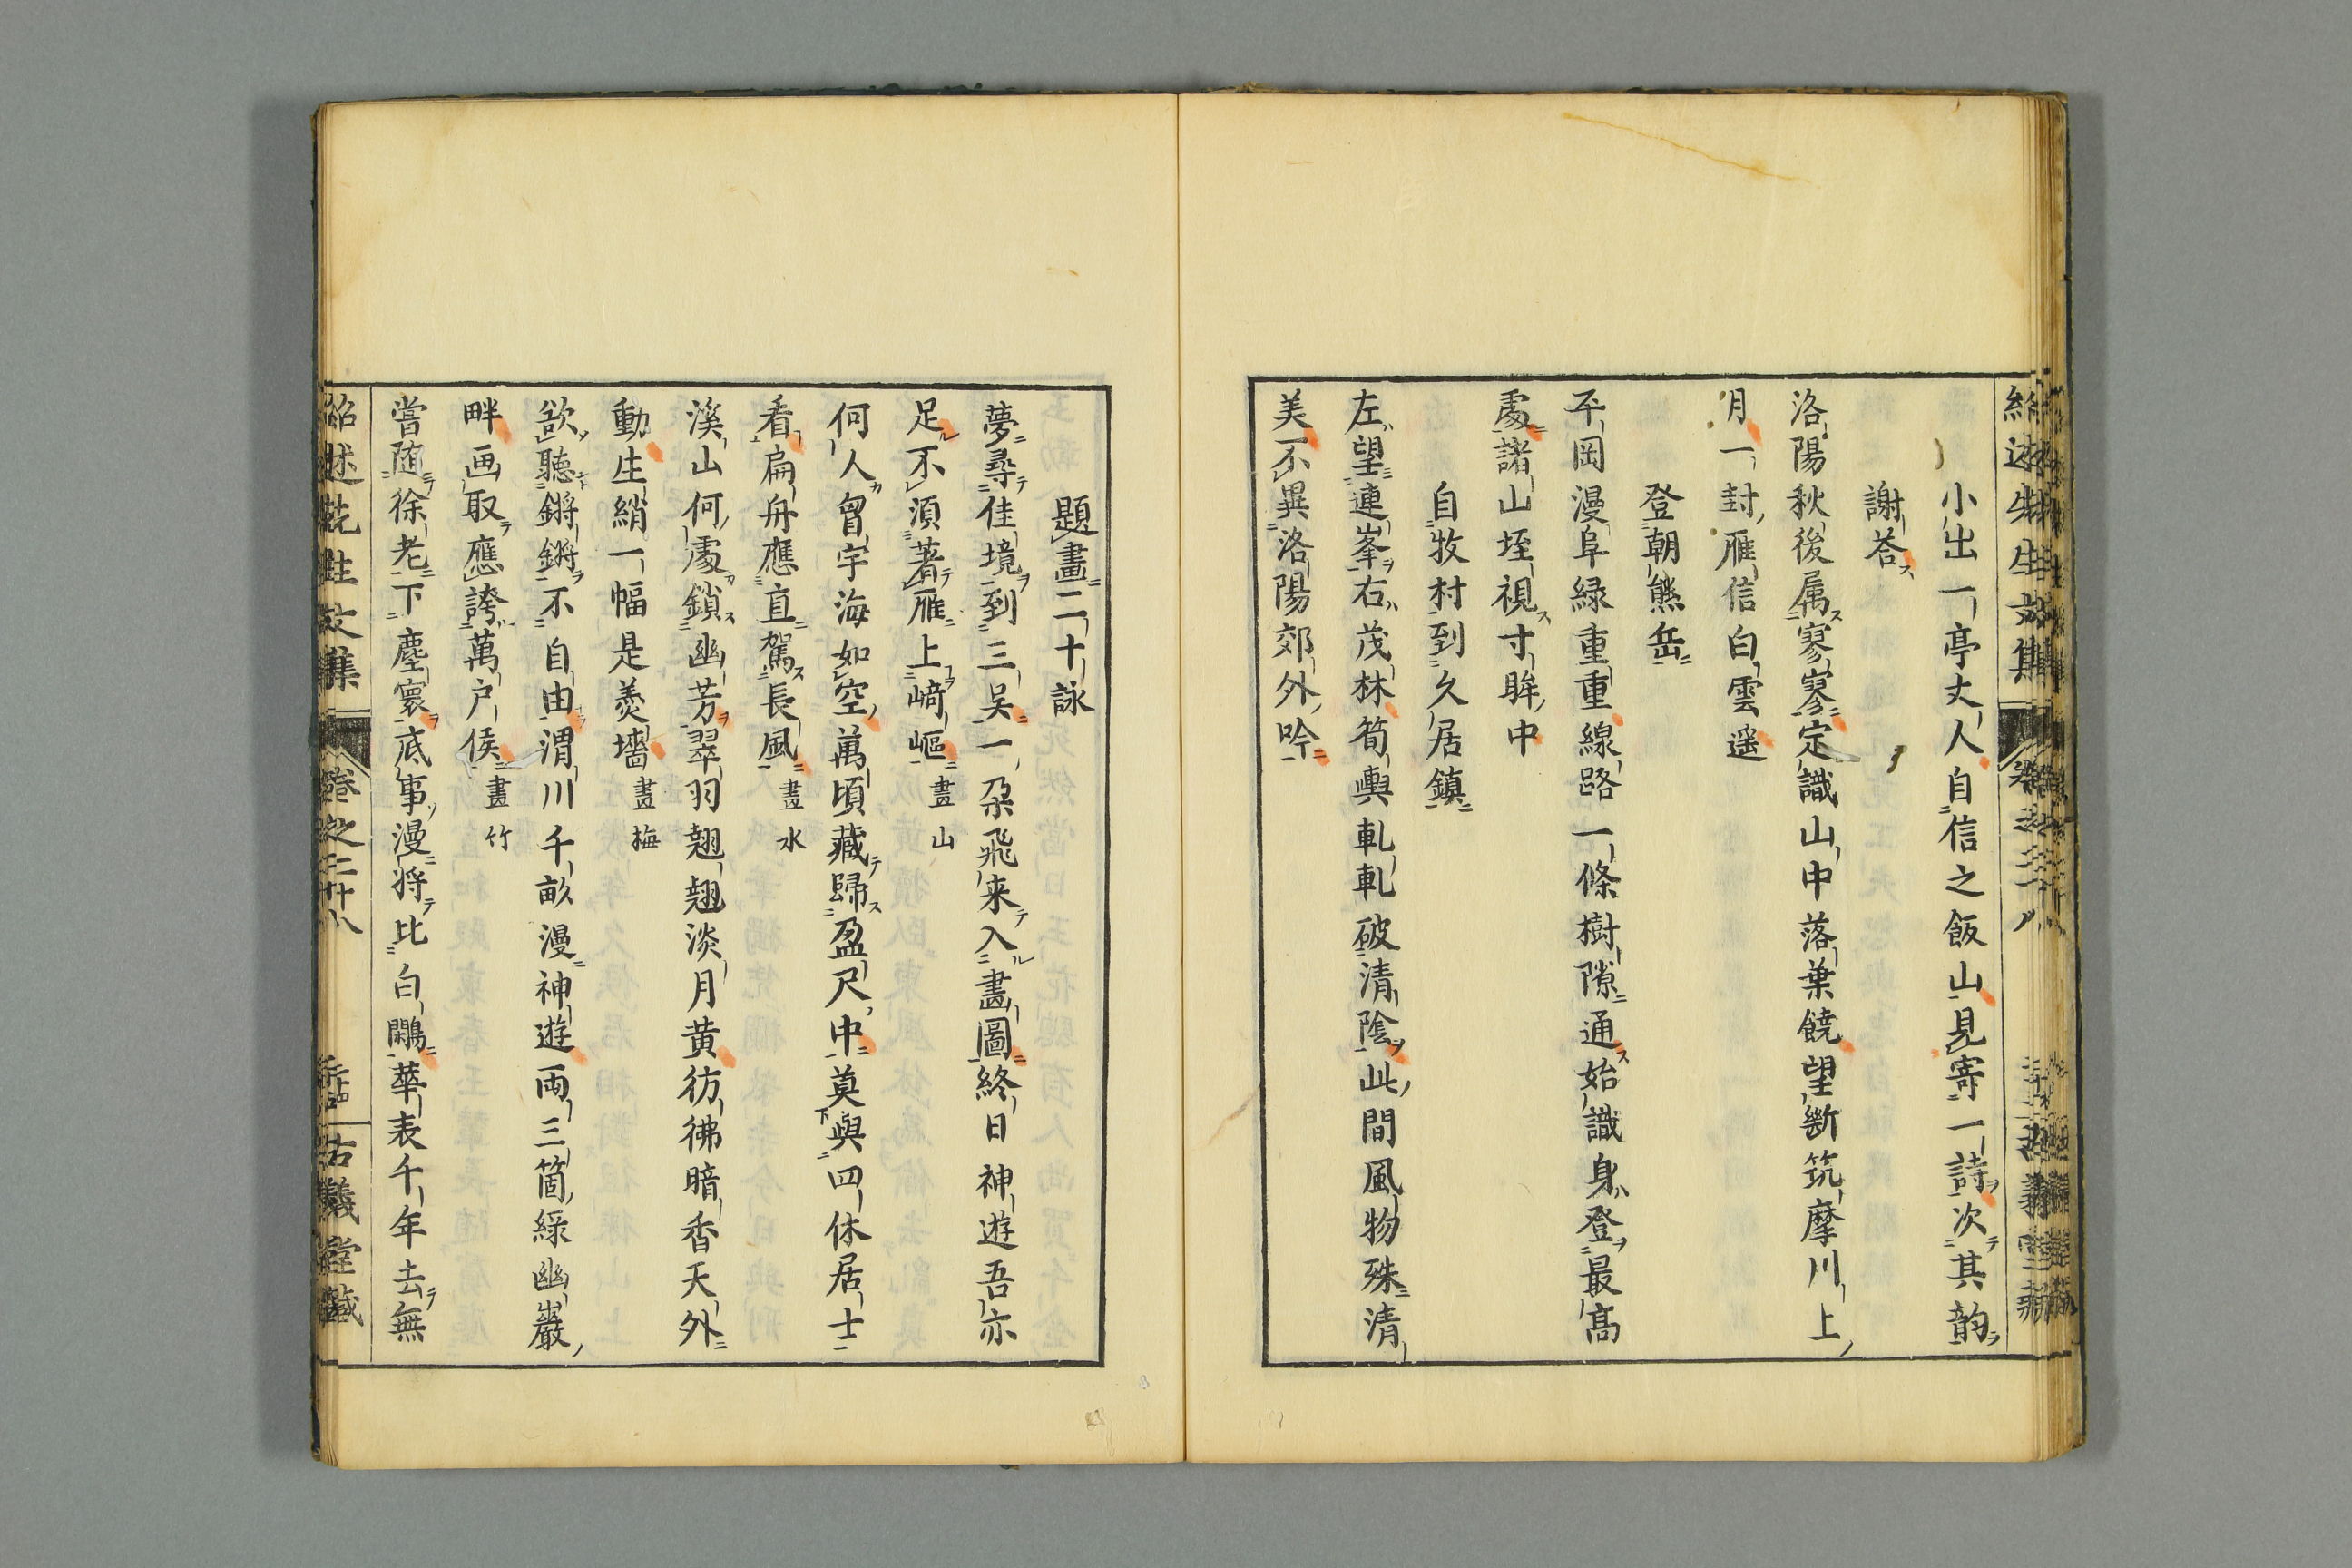 小出一亭丈人自信之飯山見寄一詩次其韵
謝荅
洛陽秋後属寥寥定識山中落葉饒望斷筑摩川上
月一封雁信白雲遥
登朝熊岳
平岡漫阜緑重重線路一條樹隙通始識身登最高
處諸山垤視寸眸中
自牧村到久居鎮
左望連峯右茂林筍輿軋軋破清陰此間風物殊清
美不異洛陽郊外吟
題畫二十詠
夢尋佳境到三吴一朶飛来入畫圖終日神遊吾亦
足不須著雁上﨑嶇畫山
何人曾宇海如空萬頃藏歸盈尺中莫與四休居士
看扁舟應直駕長風畫水
溪山何處鎖幽芳翠羽翹翹淡月黄彷彿暗香天外
動生綃一幅是羙墻畫梅
欲聽鏘鏘不自由渭川千畝漫神遊兩三箇緑幽巖
畔画取應誇萬户侯畫竹
嘗随徐老下塵寰底事漫將比白鷴華表千年去無
紹述先生文集 卷之二十八 古義堂藏